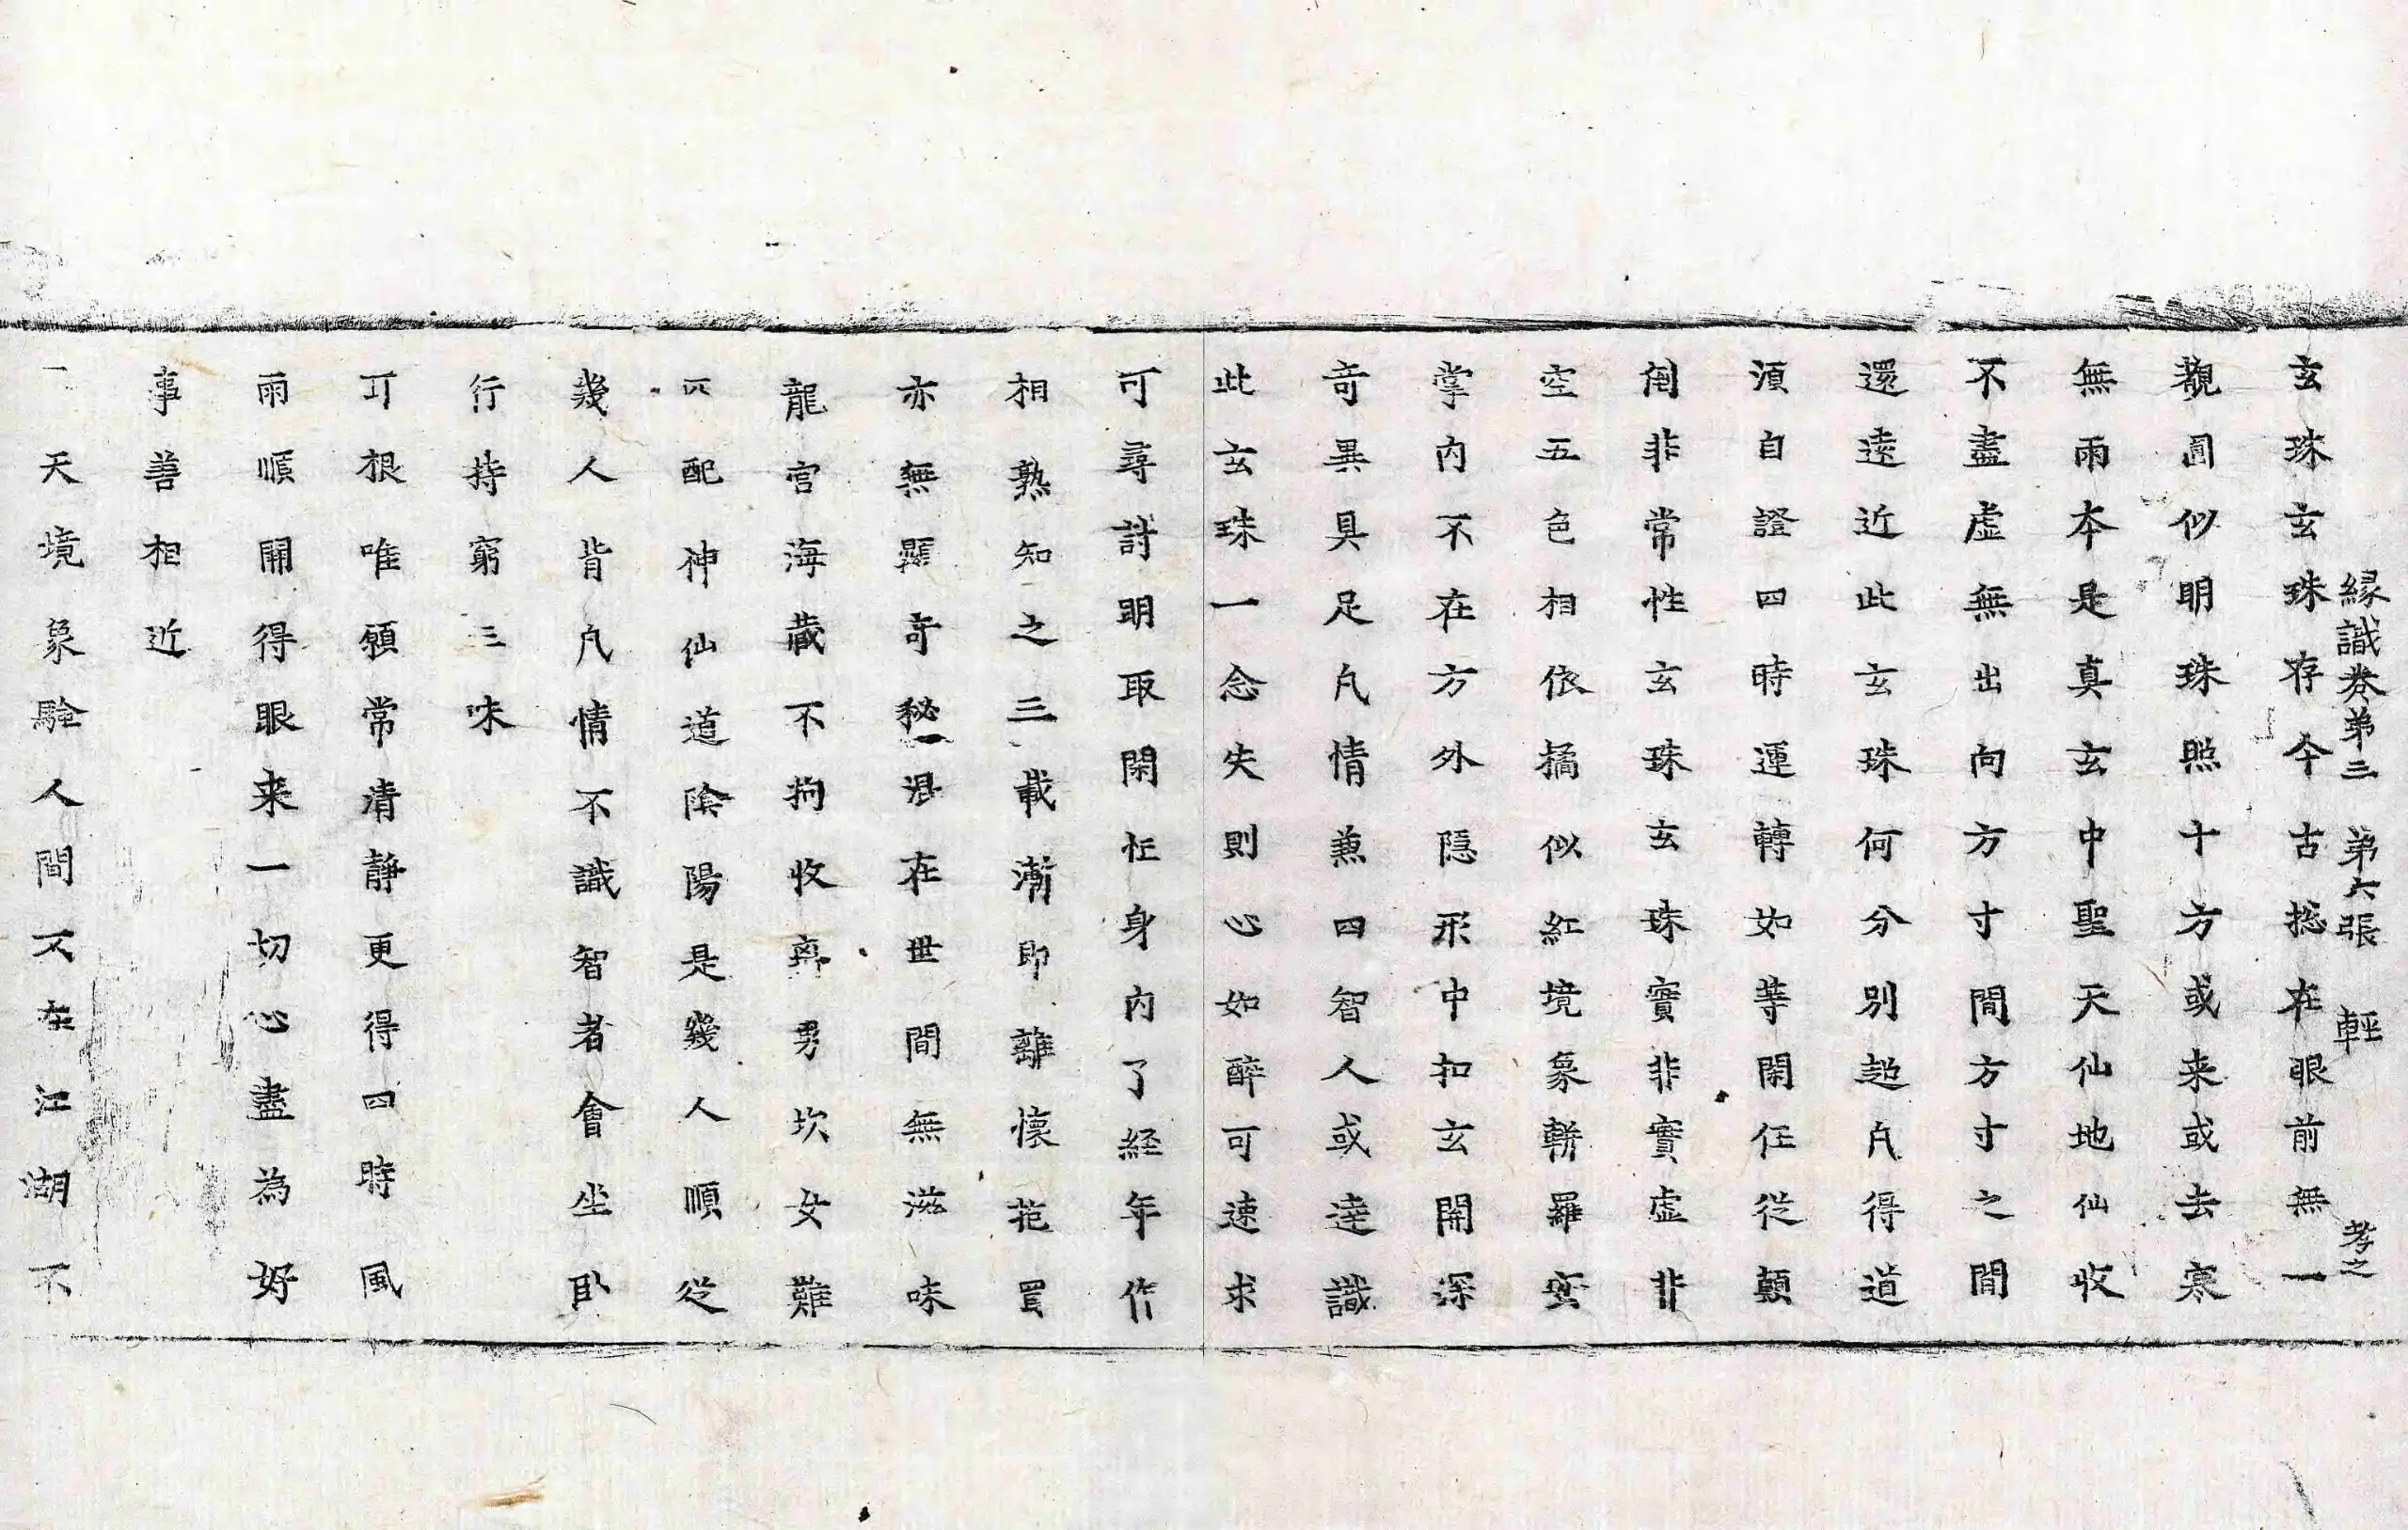 縁識卷第三 第六張 輕 孝之
玄珠玄珠存今古揔在眼前無一
覩圓似明珠照十方或来或去寒
無雨本是真玄中聖天仙地仙收
不盡虛無出向方寸間方寸之間
還遠近此玄珠何分別超凡得道
須自證四時運轉如等閑任從顛
倒非常性玄珠玄珠實非實虛非
空五色相依搐似紅境象軿羅蜜
掌內不在方外隱形中扣玄開深
竒異具足凡情兼四智人或達識
此玄珠一念失則心如醉可速求
可尋討明取閑在身內了経年作
相熟知之三載漸即離懷苞罠
亦無顯奇秘混在世間無滋味
龍宮海藏不拘收离男坎女難
匹配神仙道陰陽是幾人順從
幾人背凡情不識智者會坐卧
行持窮三味
丁根唯領常清静更得四時風
雨順開得眼来一切心盡為好
事善相近
一天境象驗人間不在江湖不